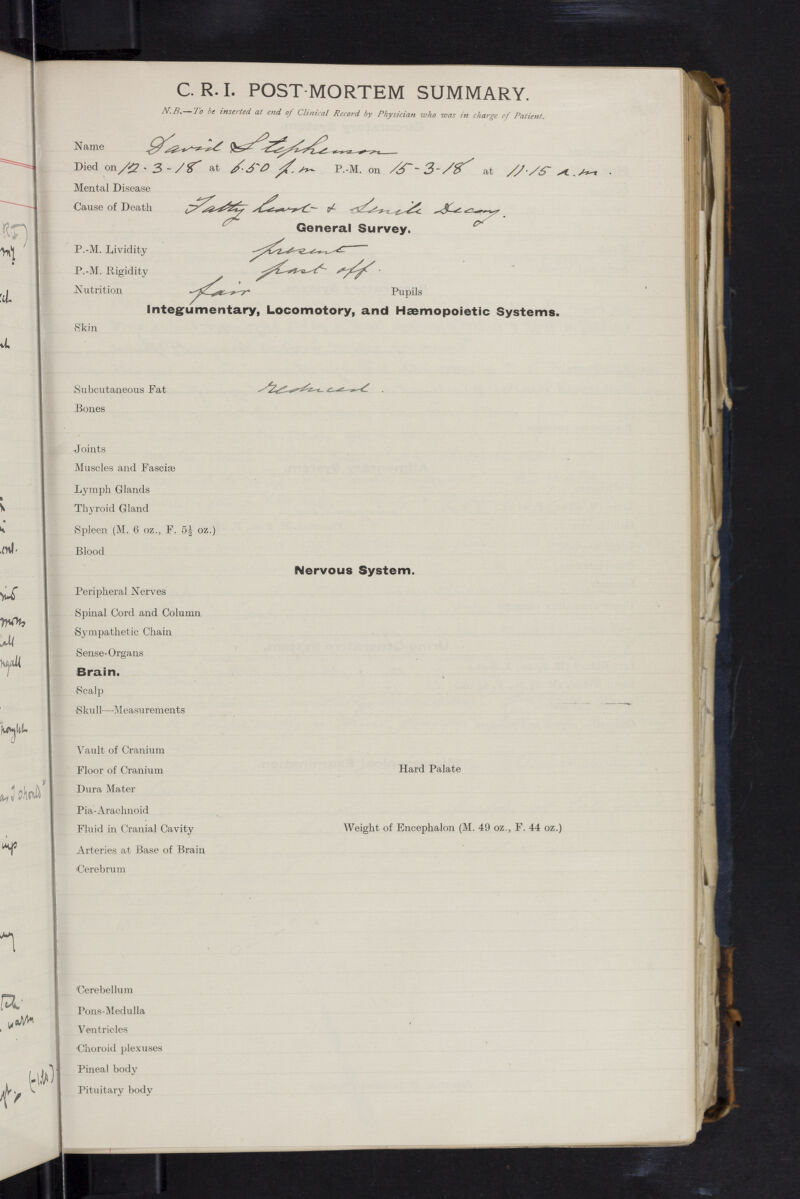 C. R. I. POST-MORTEM SUMMARY.
N.B.—To be inserted at end of Clinical Record by Physician who was in charge of Patient.
Name David Stephenson
Died on 12-3-18 at 6.50 p.m P.-M. on 15-3-18 at 11.15 a.m.
Mental Disease
Cause of Death Fatty heart & Senile Decay.
General Survey.
P.-M. Lividity present
P.-M. Rigidity past off.
Nutrition fair Pupils
Integumentary, Locomotory, and Hæmopoietic Systems.
Skin
Subcutaneous Fat reduced.
Bones
Joints
Muscles and Fasciæ
Lymph Glands
Thyroid Gland
Spleen (M. 6 oz., F. 5½ oz.)
Blood
Nervous System.
Peripheral Nerves
Spinal Cord and Column
Sympathetic Chain
Sense-Organs
Brain.
Scalp
Skull—Measurements
Vault of Cranium
Floor of Cranium Hard Palate
Dura Mater
Pia-Arachnoid
Fluid in Cranial Cavity Weight of Encephalon (M. 49 oz., F. 44 oz.)
Arteries at Base of Brain
Cerebrum
Cerebellum
Pons-Medulla
Ventricles
Choroid plexuses
Pineal body
Pituitary body